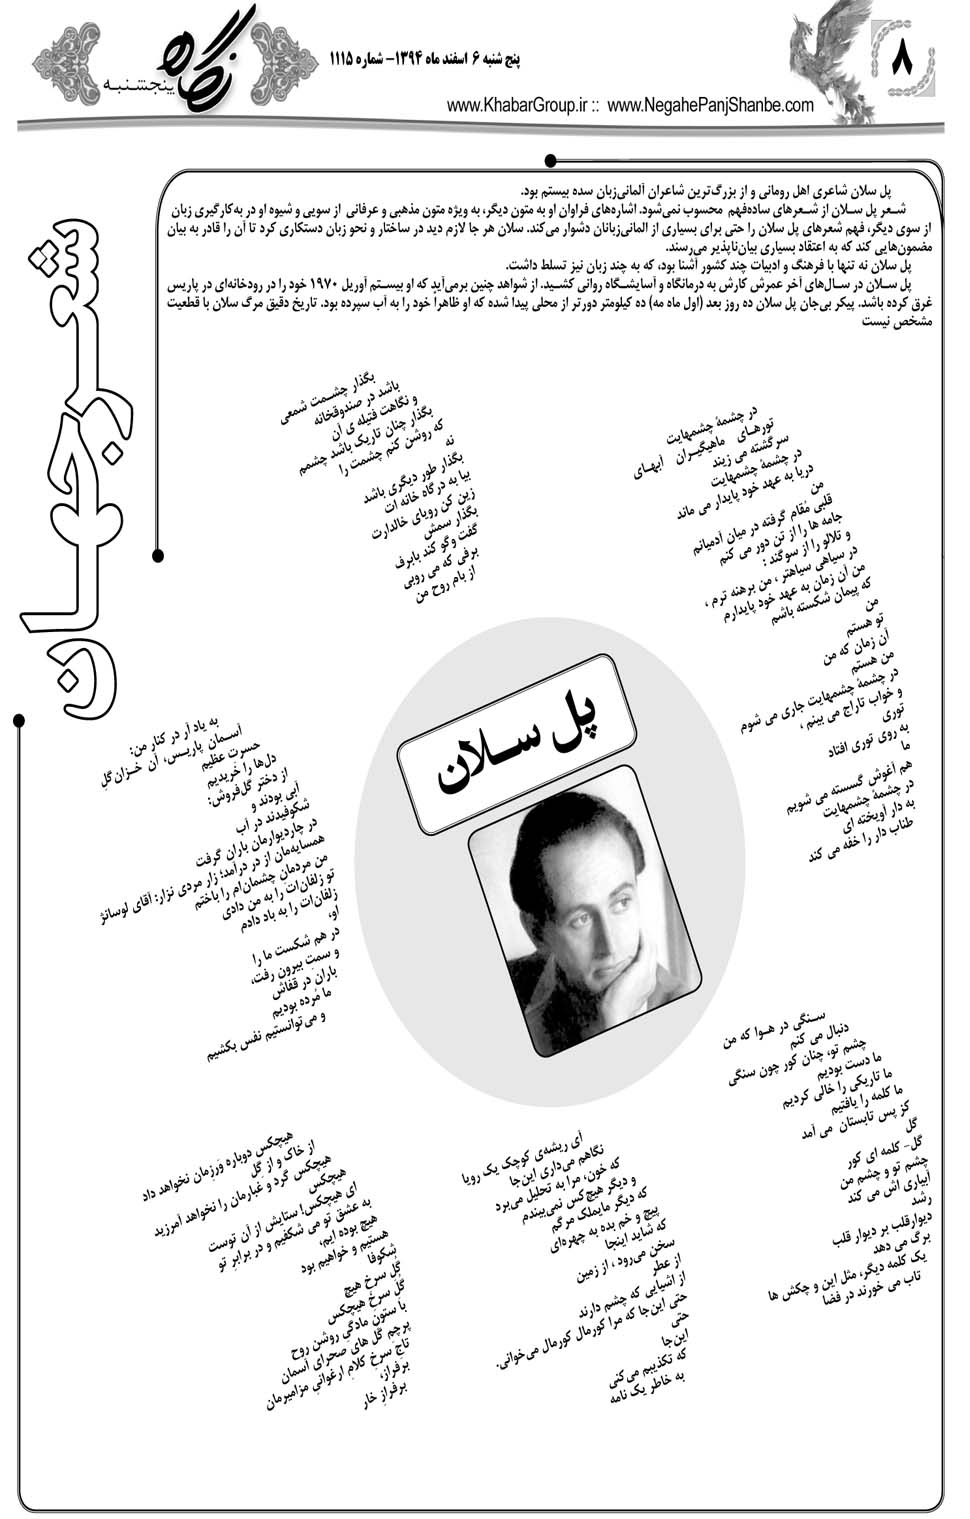 ۸
پنج شنبه ۶ اسفند ماه ۱۳۹۴- شماره ۱۱۱۵
نگاه
پنجشنبه
www.KhabarGroup.ir :: www.NegahePanjShanbe.com
شعر جهان
پل سلان شاعری اهل رومانی و از بزرگ‌ترین شاعران آلمانی‌زبان سده بیستم بود.
شـعر پل سـلان از شـعرهای ساده‌فهم محسوب نمی‌شود. اشاره‌های فراوان او به متون دیگر، به ویژه متون مذهبی و عرفانی از سویی و شیوه او در به‌کارگیری زبان
از سوی دیگر، فهم شعرهای پل سلان را حتی برای بسیاری از المانی‌زبانان دشوار می‌کند. سلان هر جا لازم دید در ساختار و نحو زبان دستکاری کرد تا آن را قادر به بیان
مضمون‌هایی کند که به اعتقاد بسیاری بیان‌ناپذیر می‌رسند.
پل سلان نه تنها با فرهنگ و ادبیات چند کشور آشنا بود، که به چند زبان نیز تسلط داشت.
پل سـلان در سـال‌های آخر عمرش کارش به درمانگاه و آسایشـگاه روانی کشـید. از شواهد چنین برمی‌آید که او بیسـتم آوریل ۱۹۷۰ خود را در رودخانه‌ای در پاریس
غرق کرده باشد. پیکر بی‌جان پل سلان ده روز بعد (اول ماه مه) ده کیلومتر دورتر از محلی پیدا شده که او ظاهرا خود را به آب سپرده بود. تاریخ دقیق مرگ سلان با قطعیت
مشخص نیست
در چشمهٔ چشمهایت
تورهـای ماهیگیـران آبهـای
سرگشته می زیند
در چشمهٔ چشمهایت
دریا به عهد خود پایدار می ماند
من
قلبی مُقام گرفته در میان آدمیانم
جامه ها را از تن دور می کنم
و تلالو را از سوگند :
در سیاهی سیاهتر ، من برهنه ترم ،
من آن زمان به عهد خود پایدارم
که پیمان شکسته باشم
من
تو هستم
آن زمان که من
من هستم
در چشمهٔ چشمهایت جاری می شوم
و خواب تاراج می بینم ،
توری
به روی توری افتاد
ما
هم آغوش گسسته می شویم
در چشمهٔ چشمهایت
به دار آویخته ای
طناب دار را خفه می کند
بگذار چشـمت شمعی
باشد در صندوقخانه
و نگاهت فتیله ی آن
بگذار چنان تاریک باشد چشمم
که روشن کنم چشمت را
نه
بگذار طور دیگری باشد
بیا به درگاه خانه ات
زین کن رویای خالدارت
بگذار سمش
گفت وگو کند بابرف
برفی که می روبی
از بام روح من
پل سـلان
به یاد آر در کنار من:
آسـمان پاریـس، آن خـزان‌گلِ
حسرت عظیم
دل‌ها را خریدیم
از دختر گل‌فروش:
آبی بودند و
شکوفیدند در آب
در چاردیوارمان باران گرفت
همسایه‌مان از در درآمد؛ زار مردی نزار: آقای لوسانژ
من مردمان چشمان‌ام را باختم
تو زلفان‌ات را به من دادی
زلفان‌ات را به باد دادم
او،
در هم شکست ما را
و سمتِ بیرون رفت،
باران در قفاش
ما مُرده بودیم
و می‌توانستیم نفس بکشیم
سـنگی در هـوا که من
دنبال می کنم
چشم تو، چنان کور چون سنگی
ما دست بودیم
ما تاریکی را خالی کردیم
ما کلمه را یافتیم
کز پس تابستان می آمد
گل
گل- کلمه ای کور
چشم تو و چشم من
آبیاری اش می کند
رشد
دیوارقلب بر دیوار قلب
برگ می دهد
یک کلمه دیگر، مثل این و چکش ها
تاب می خورند در فضا
آی ریشه‌ی کوچک یک رویا
نگاهم می‌داری این‌جا
که خون، مرا به تحلیل می‌برد
و دیگر هیچ‌کس نمی‌بیندم
که دیگر مایملک مرگم
پیچ و خم بده به چهره‌ای
که شاید اینجا
سخن می‌رود ، از زمین
از عطر
از اشیایی که چشم دارند
حتی این‌جا که مرا کورمال کورمال می‌خوانی.
حتی
این‌جا
که تکذیبم می‌کنی
به خاطر یک نامه
هیچکس دوباره وَرزمان نخواهد داد
از خاک و از گل
هیچکس گرد و غبارمان را نخواهد آمرزید
هیچکس
ای هیچکس! ستایش از آن توست
به عشق تو می شکفیم و در برابرِ تو
هیچ بوده ایم،
هستیم و خواهیم بود
شکوفا
گُلِ سرخِ هیچ
گُلِ سرخِ هیچکس
با ستونِ مادگیِ روشنِ روح
پرچمِ گل های صحرای آسمان
تاجِ سرخِ کلامِ ارغوانیِ مزامیرمان
برفراز،
برفرازِ خار